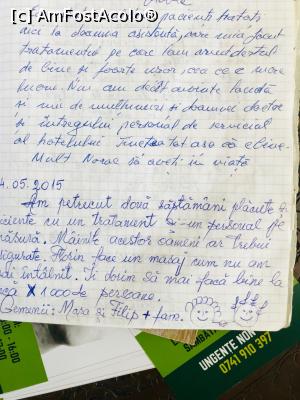 [c] AmFostAcolo®
pacienți tratați
aici la doamna asistentă, care mi-a făcut
tratamentul pe care l-am avut destul
de bine și foarte ușor, ceea ce e mare
lucru. N-am decât cuvinte de laudă
și mii de mulțumiri și doamnei doctor
și întregului personal de serviciu
al hotelului. Țineți-o tot așa că e bine.
Mult Noroc să aveți în viață
4.05.2015
Am petrecut două săptămâni plăcute
eficiente cu un tratament și un personal pe
măsură. Mâinile acestor oameni ar trebui
asigurate. Florin face un masaj cum nu am
mai întâlnit. Ți dorim să mai facă bine la
încă x 1000 de persoane.
Gemenii: Mara și Filip + fam.
16:00
17:00
SÂMBĂTA
URGENTE NON
0741 910 397